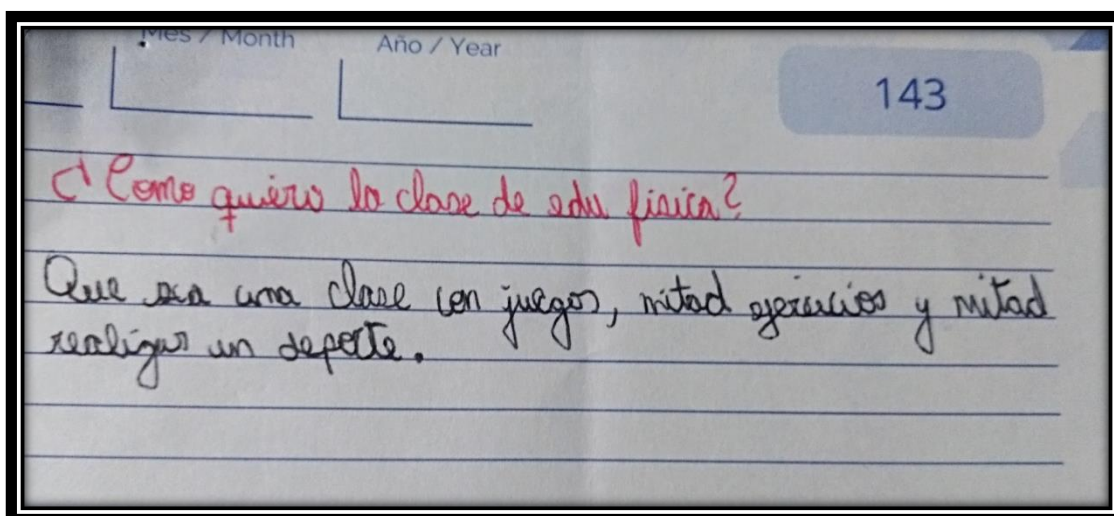 Mes / Month Año / Year
143
¿Como quiero la clase de edu fisica?
Que sea una clase con juegos, mitad ejercicios y mitad
realizar un deporte.